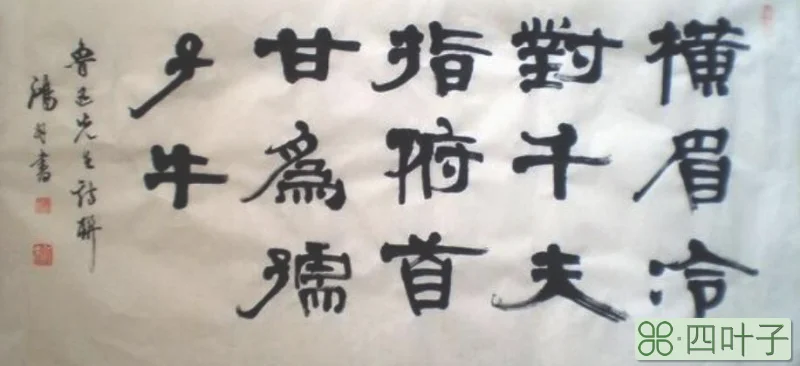 橫眉冷
對千夫
指俯首
甘為孺
子牛
魯迅先生詩聯
书
四叶子